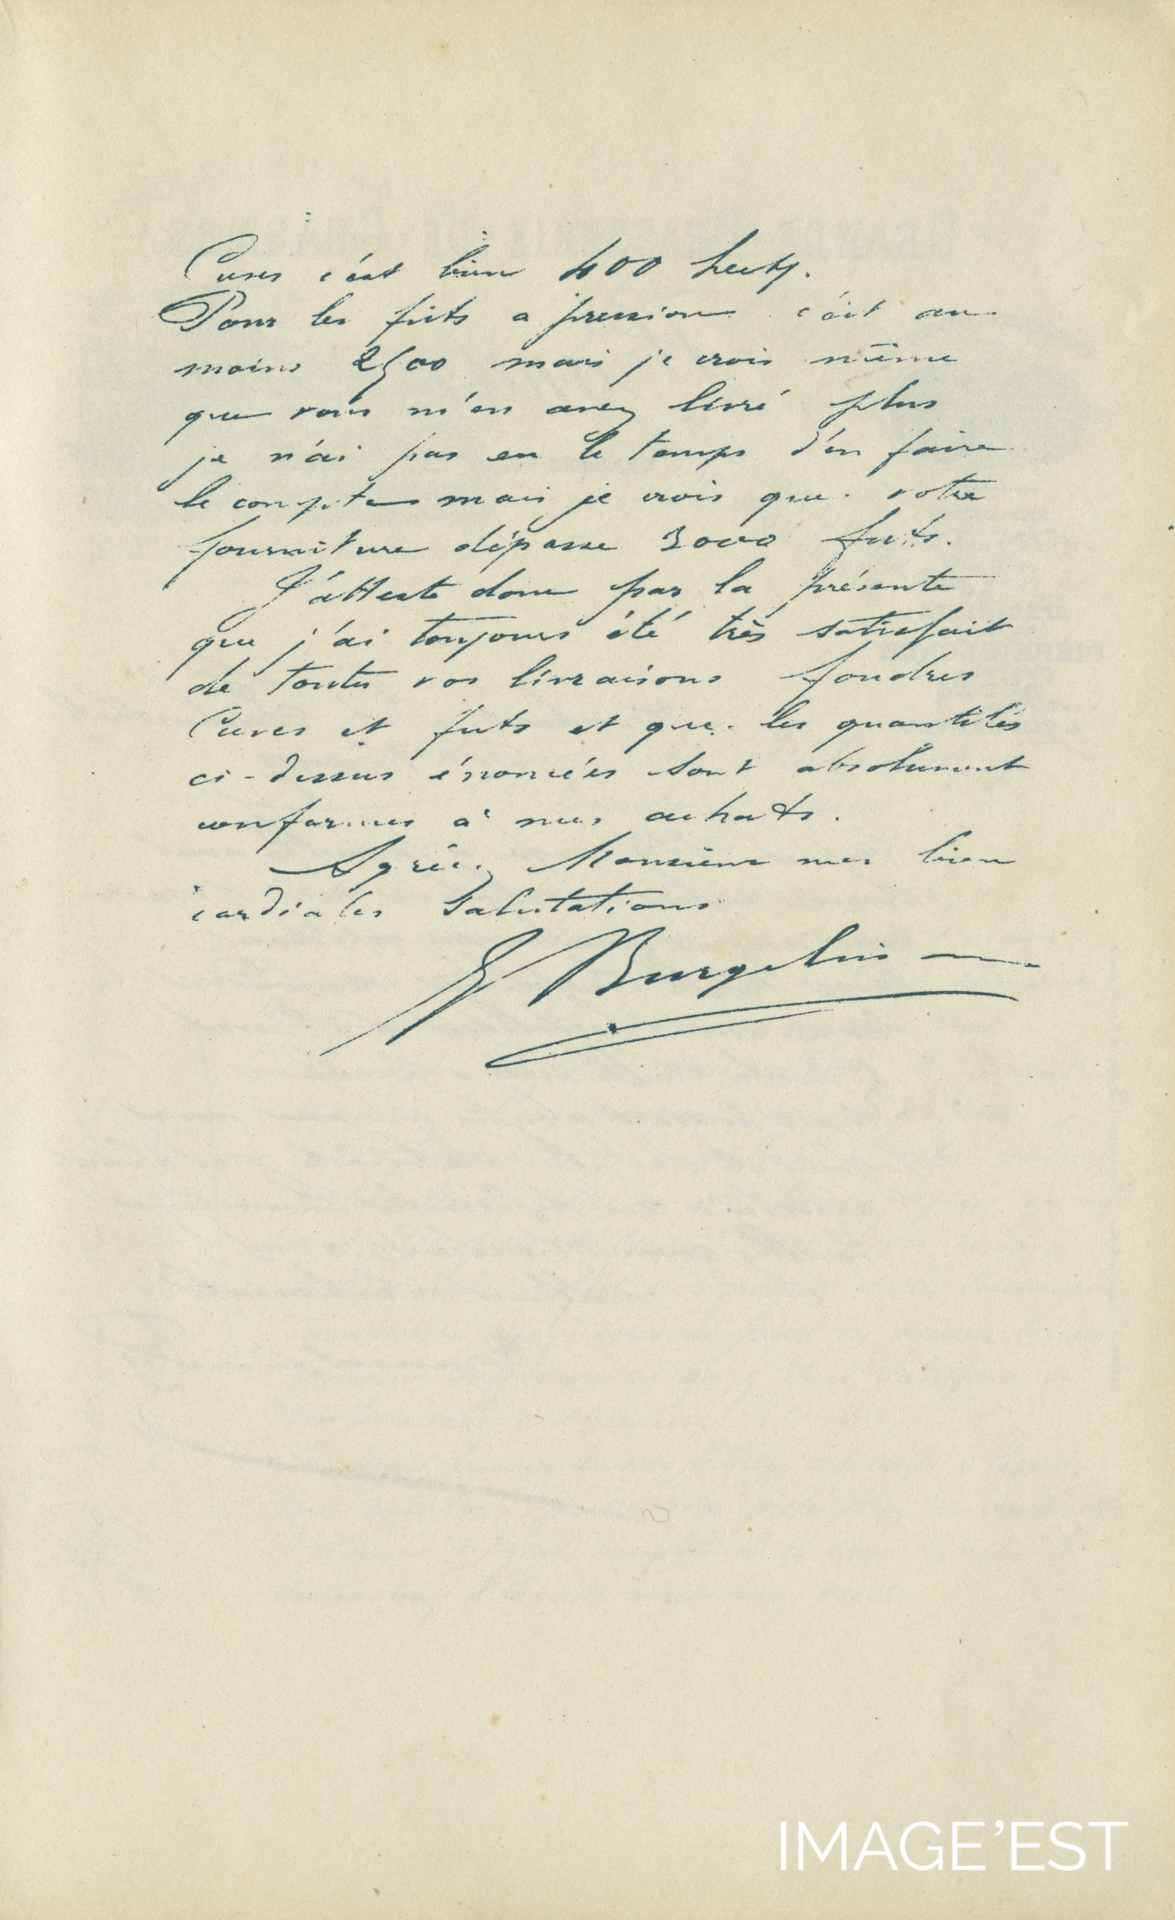 Cuves c'est bien 400 hects.
Pour les futs a pression c'est au
moins 2500 mais je crois même
que vous m'en avez livré plus
je n'ai pas eu le temps d'en faire
le compte mais je crois que votre
fourniture dépasse 3000 futs.
J'atteste donc par la présente
que j'ai toujours été très satisfait
de toutes vos livraisons foudres
Cuves et futs et que les quantités
ci-dessus énoncées sont absolument
conformes à mes achats.
Agréez Monsieur mes bien
cordiales Salutations
Burgelin
IMAGE'EST